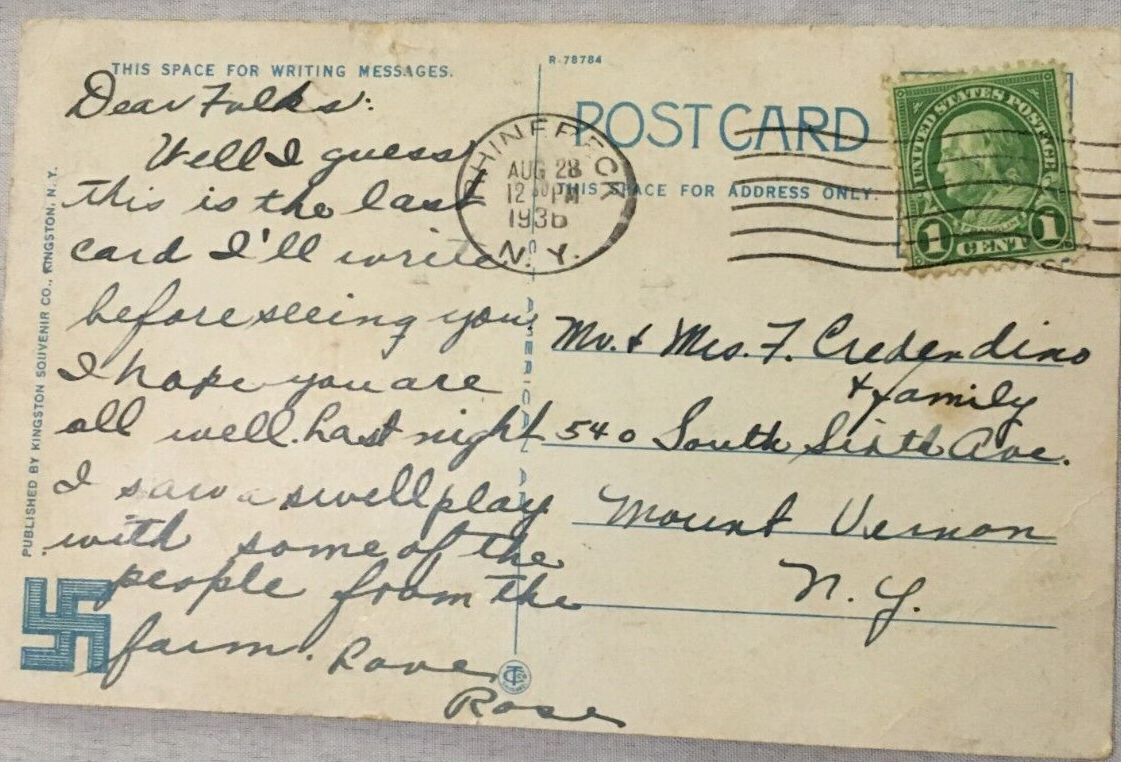 THIS SPACE FOR WRITING MESSAGES.
Dear Folks:
Well I guess
this is the last
card I'll write
before seeing you.
I hope you are
all well. Last night
I saw a swell play
with some of the
people from the
farm. Love
Rose
PUBLISHED BY KINGSTON SOUVENIR CO., KINGSTON, N. Y.
R-78784
POST CARD
THIS SPACE FOR ADDRESS ONLY.
RHINEBECK
AUG 28
12 PM
1936
N. Y.
UNITED STATES POSTAGE
FRANKLIN
1 CENT 1
AMERICAN ART
Mr. & Mrs. F. Credendino
& family
540 South Sixth Ave.
Mount Vernon
N. Y.